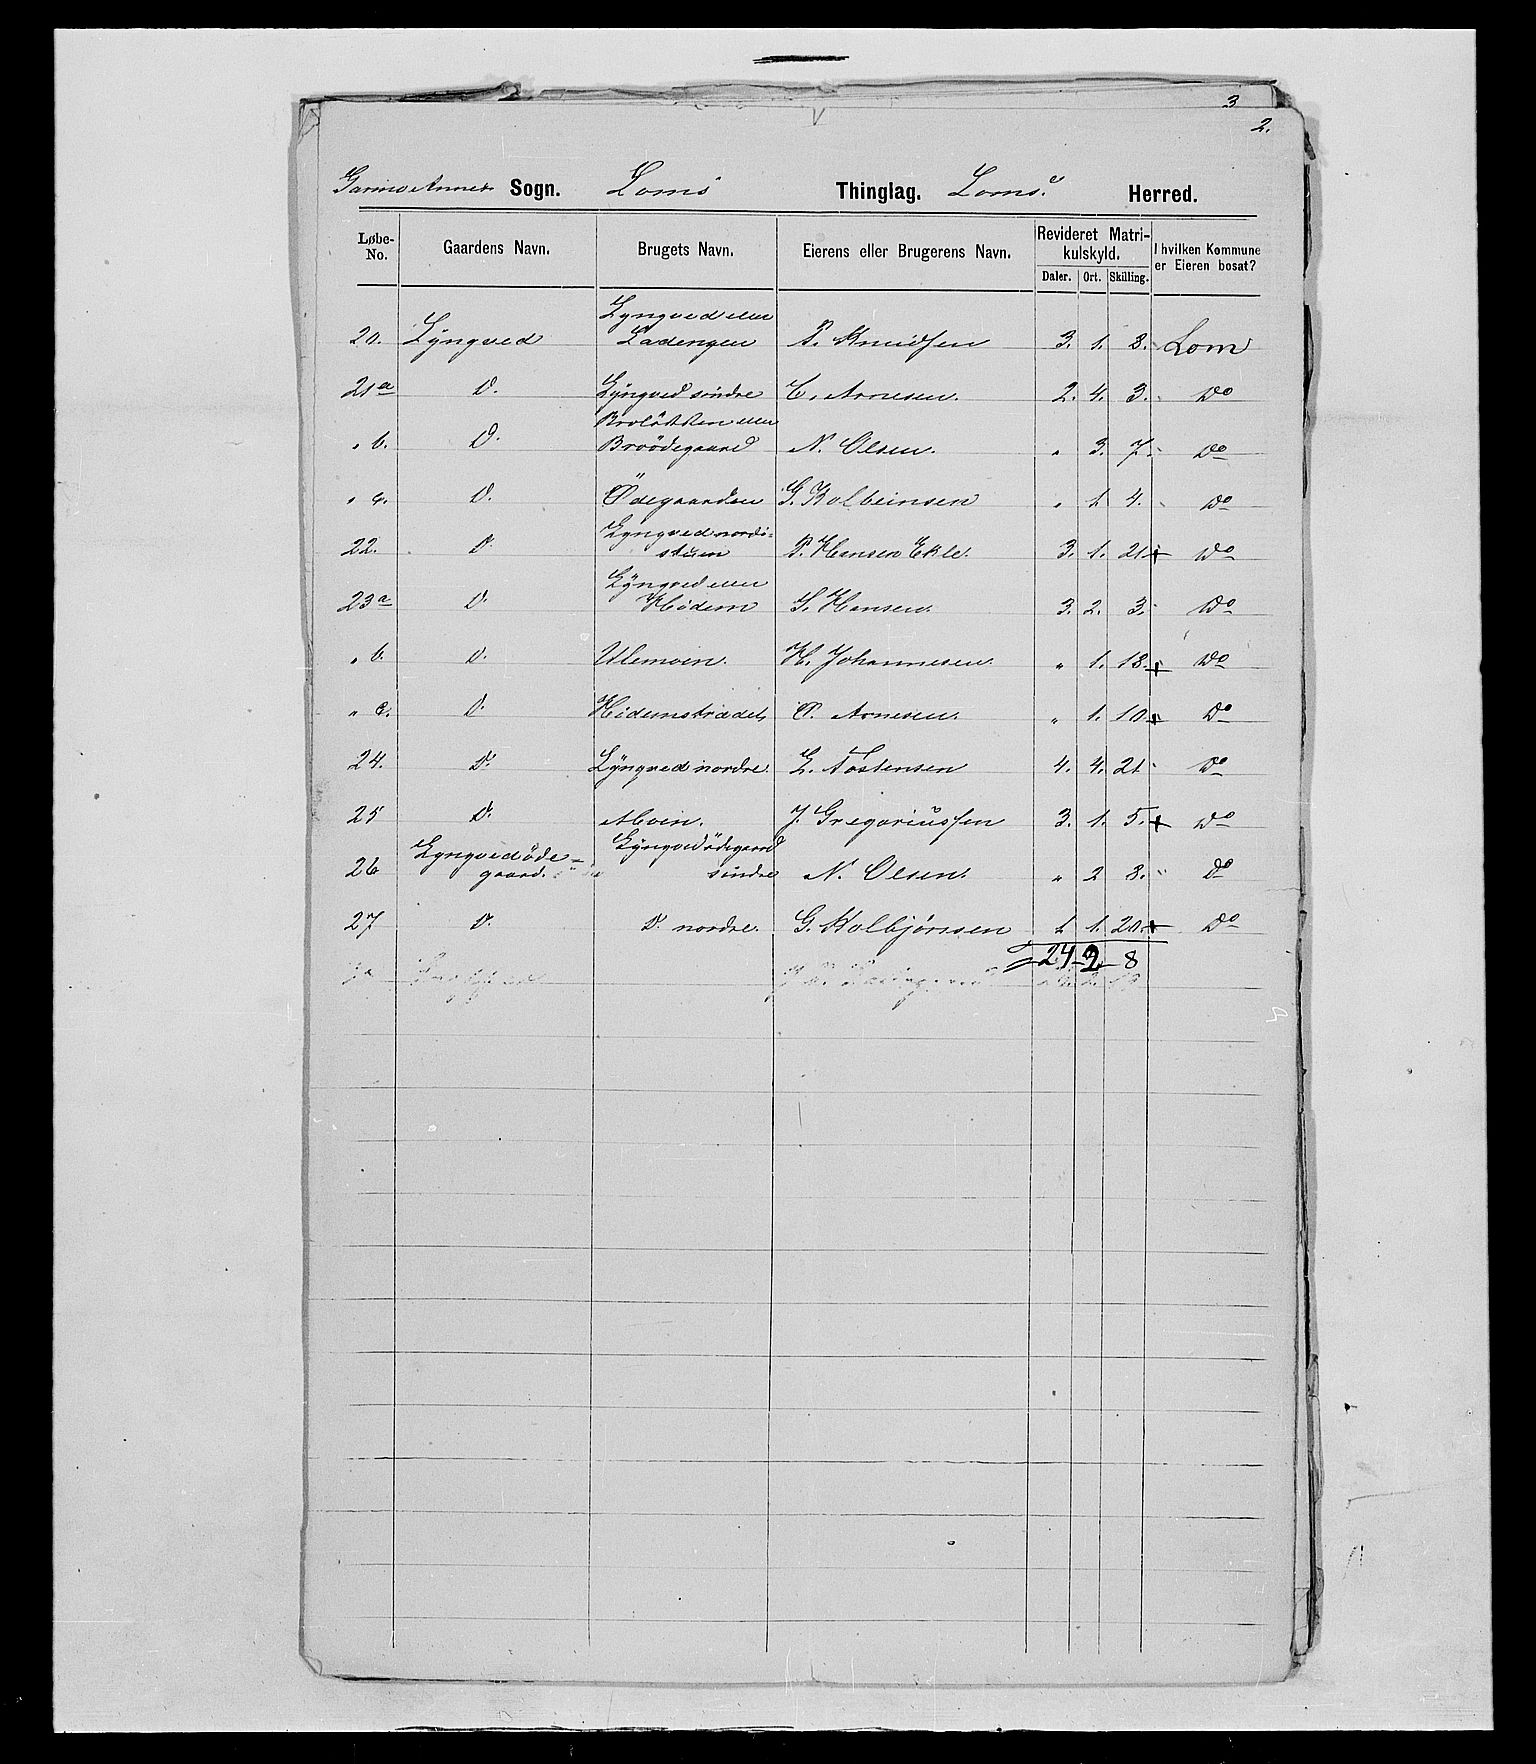 3
2.
Garmo Annex Sogn. Loms Thinglag. Loms Herred.
Løbe-No. Gaardens Navn. Brugets Navn. Eierens eller Brugerens Navn. Revideret Matrikulskyld. Daler. Ort. Skilling. I hvilken Kommune er Eieren bosat?
20. Lÿngved Lyngved eller Ladengen P. Knudsen 3. 1. 8. Lom
21a D. Lÿngved söndre E. Arnesen. 2. 4. 3. Do
" b. D. eller Broödegaard N. Olsen. " 3. 7. Do
" c. D. Ödegaarden G. Kolbeinsen " 1 4. Do
22. D. Lyngved nordi= stuen P. Hansen Ekle. 3. 1. 21 + Do
23a D. Lÿngved eller Hidem S. Hansen. 3. 2. 3. Do
" b. D. Ulemoen. H. Johannesen. " 1. 18. + Do
" c. D. Hidemstrædet O. Arnesen. " 1. 10. + Do
24. D. Lÿngved nordre. L. Tostensen 4. 4. 21 Do
25 D. Moen. J. Gregoriussen 3. 1. 5. + Do
26 Lyngvedöde= gaard. Lÿngvedödegaard söndre N. Olsen. " 2 8. " Do
27 D. D. nordre. G. Kolbjørnsen 1 1. 20. + Do
24 - 2 - 8